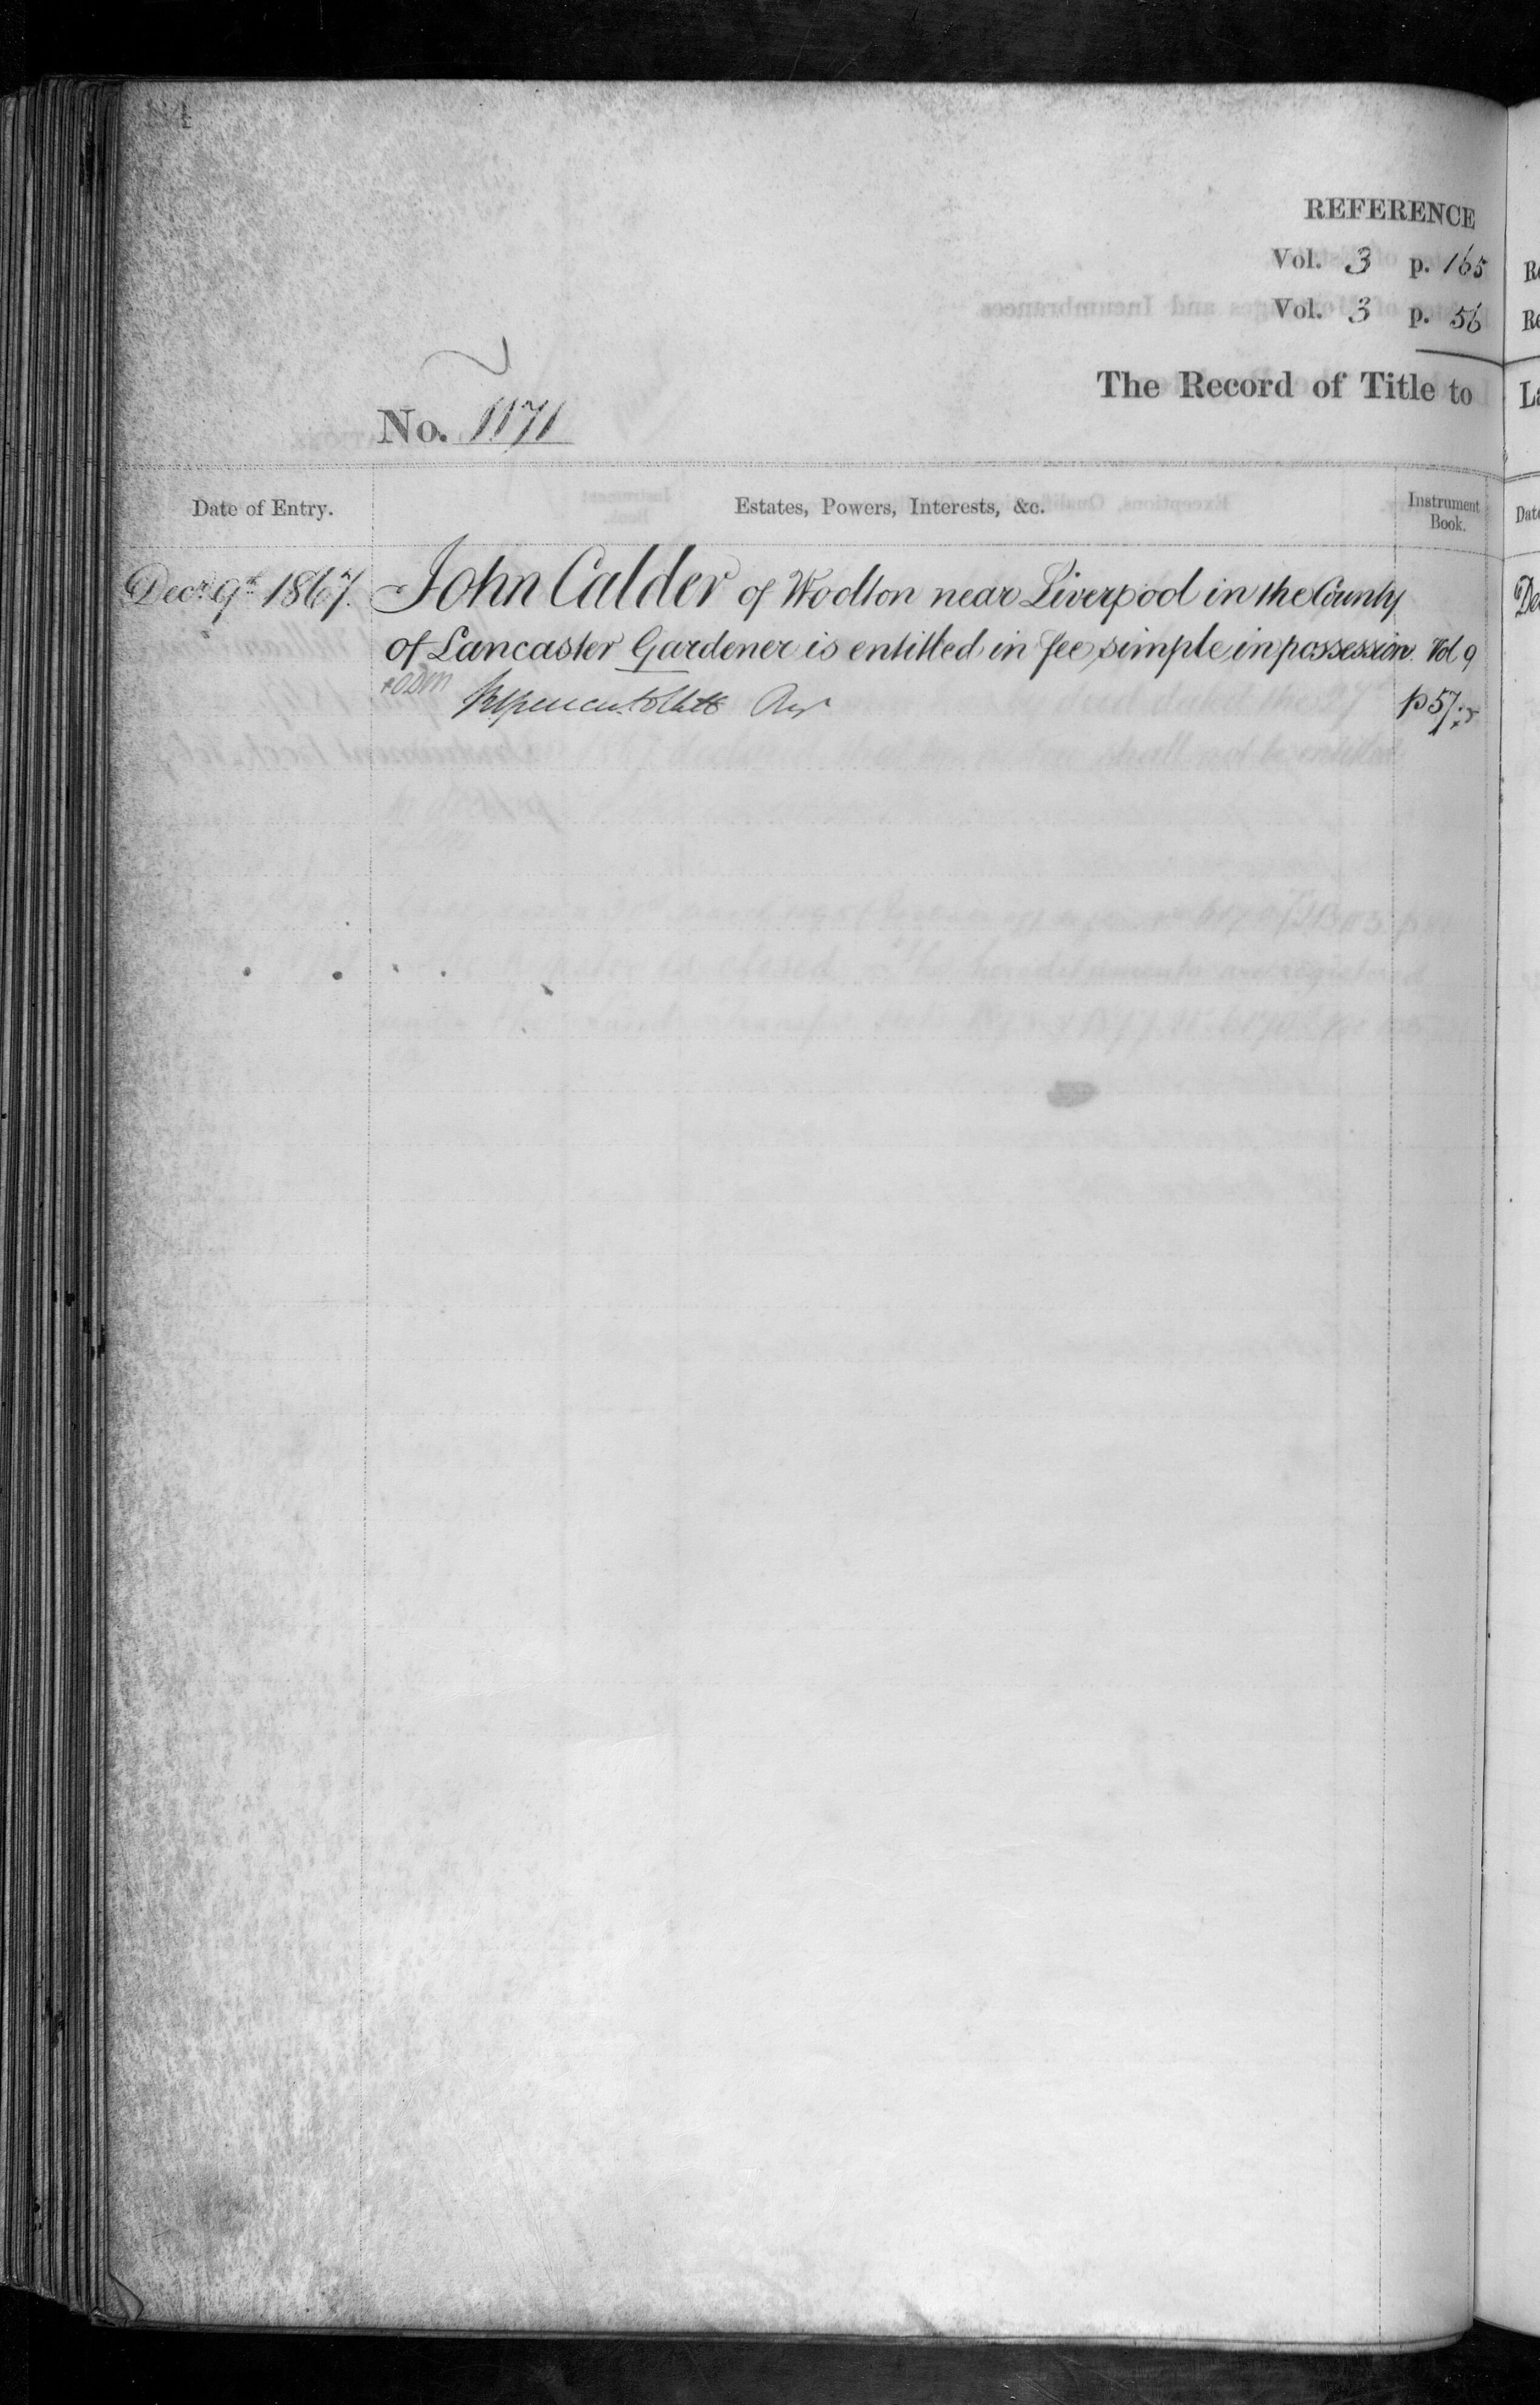 REFERENCE
Vol. 3 p. 165
Vol. 3 p. 56
The Record of Title to
No. 1171
Date of Entry.
Estates, Powers, Interests, &c.
Instrument Book.
Decr. 9th 1867.
John Calder of Woolton near Liverpool in the County
of Lancaster Gardener is entitled in fee simple in possession. Vol 9
p 57.